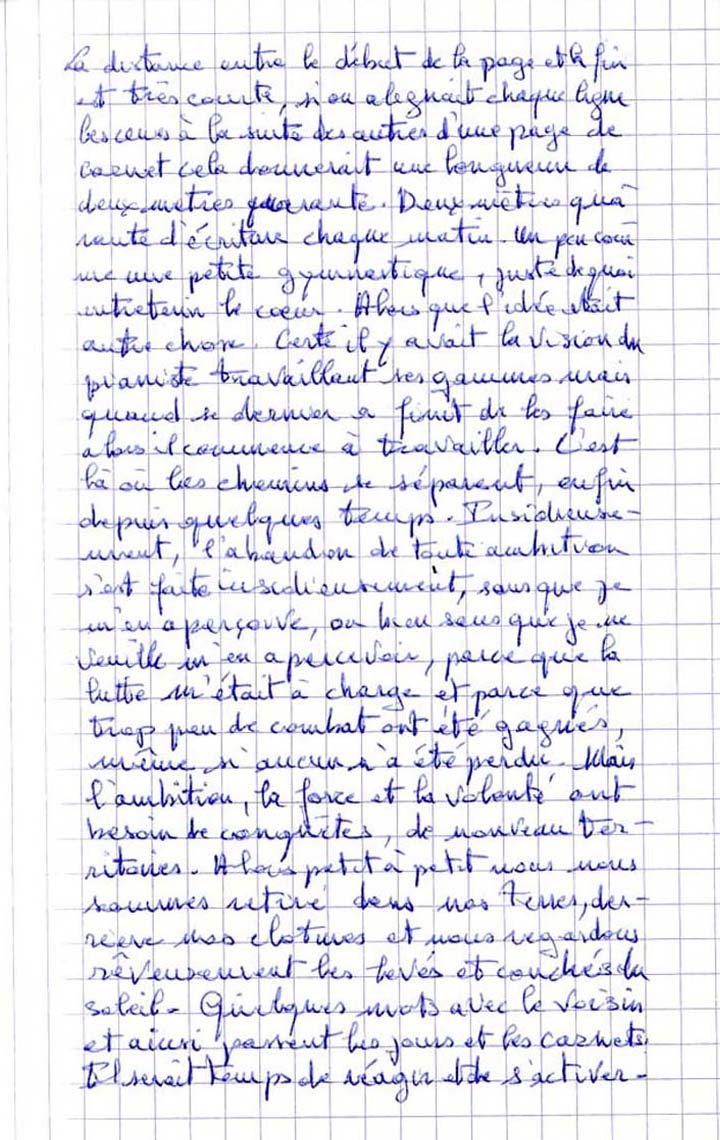 La distance entre le début de la page et la fin
est très courte, si on alegnait chaque ligne
les cenes à la suite des autres d'une page de
carnet cela donnerait une longueur de
deux mètres quarante. Deux mètres qua
rante d'écriture chaque matin. Un peu com
me une petite gymnastique, juste de quoi
entretenir le cœur. Alors que l'idée était
autre chose. Certe il y avait la vision du
pianiste travaillant ses gammes mais
quand se dernier a finit de les faire
alors il commence à travailler. C'est
là où les chemins se séparent, enfin
depuis quelques temps. Insidieuse-
ment, l'abandon de toute ambition
s'est faite insidieusement, sans que je
m'en aperçoive, ou bien sans que je ne
veuille m'en apercevoir, parce que la
lutte m'était à charge et parce que
trop peu de combat ont été gagnés,
même si aucun n'a été perdu. Mais
l'ambition, la force et la volonté ont
besoin de conquêtes, de nouveau ter-
ritoires. Alors petit à petit nous nous
sommes retiré dans nos terres, der-
rière nos clotures et nous regardons
rêveusement les levés et couchés du
soleil. Quelques mots avec le voisin
et ainsi passent les jours et les carnets.
Il serait temps de réagir et de s'activer.